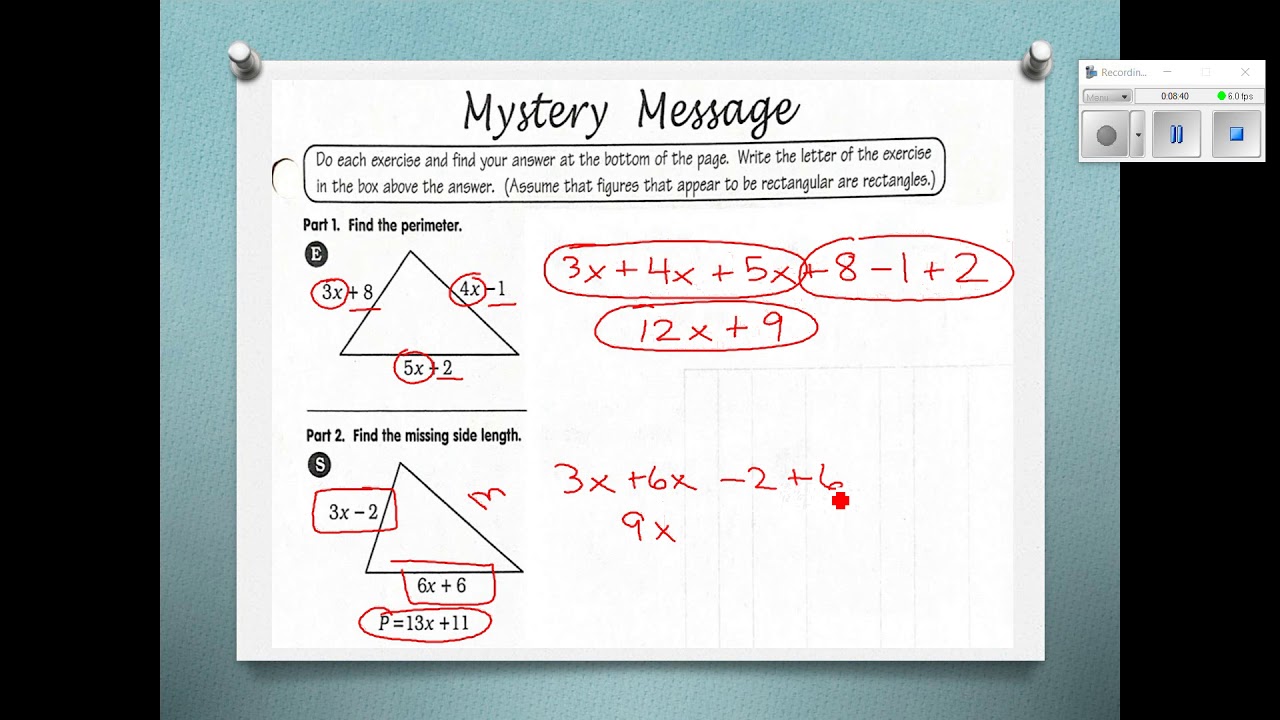 Recordin...
Menu
0:08:40
6.0 fps
Mystery Message
Do each exercise and find your answer at the bottom of the page. Write the letter of the exercise
in the box above the answer. (Assume that figures that appear to be rectangular are rectangles.)
Part 1. Find the perimeter.
E
3x + 8
4x - 1
5x + 2
3x + 4x + 5x + 8 - 1 + 2
12x + 9
Part 2. Find the missing side length.
S
3x - 2
m
6x + 6
P = 13x + 11
3x + 6x - 2 + 6
9x